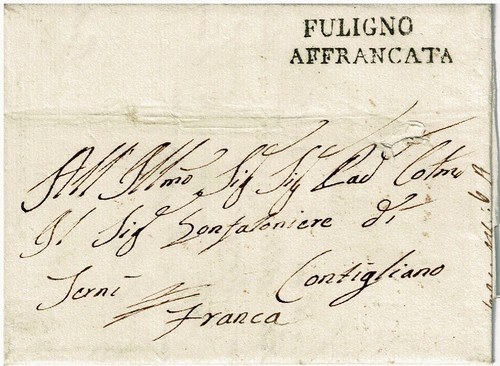 FULIGNO
AFFRANCATA
All' Illmo Sig Sig Pad Colmo
Il Sig Gonfaloniere di
Terni Contigliano
Franca